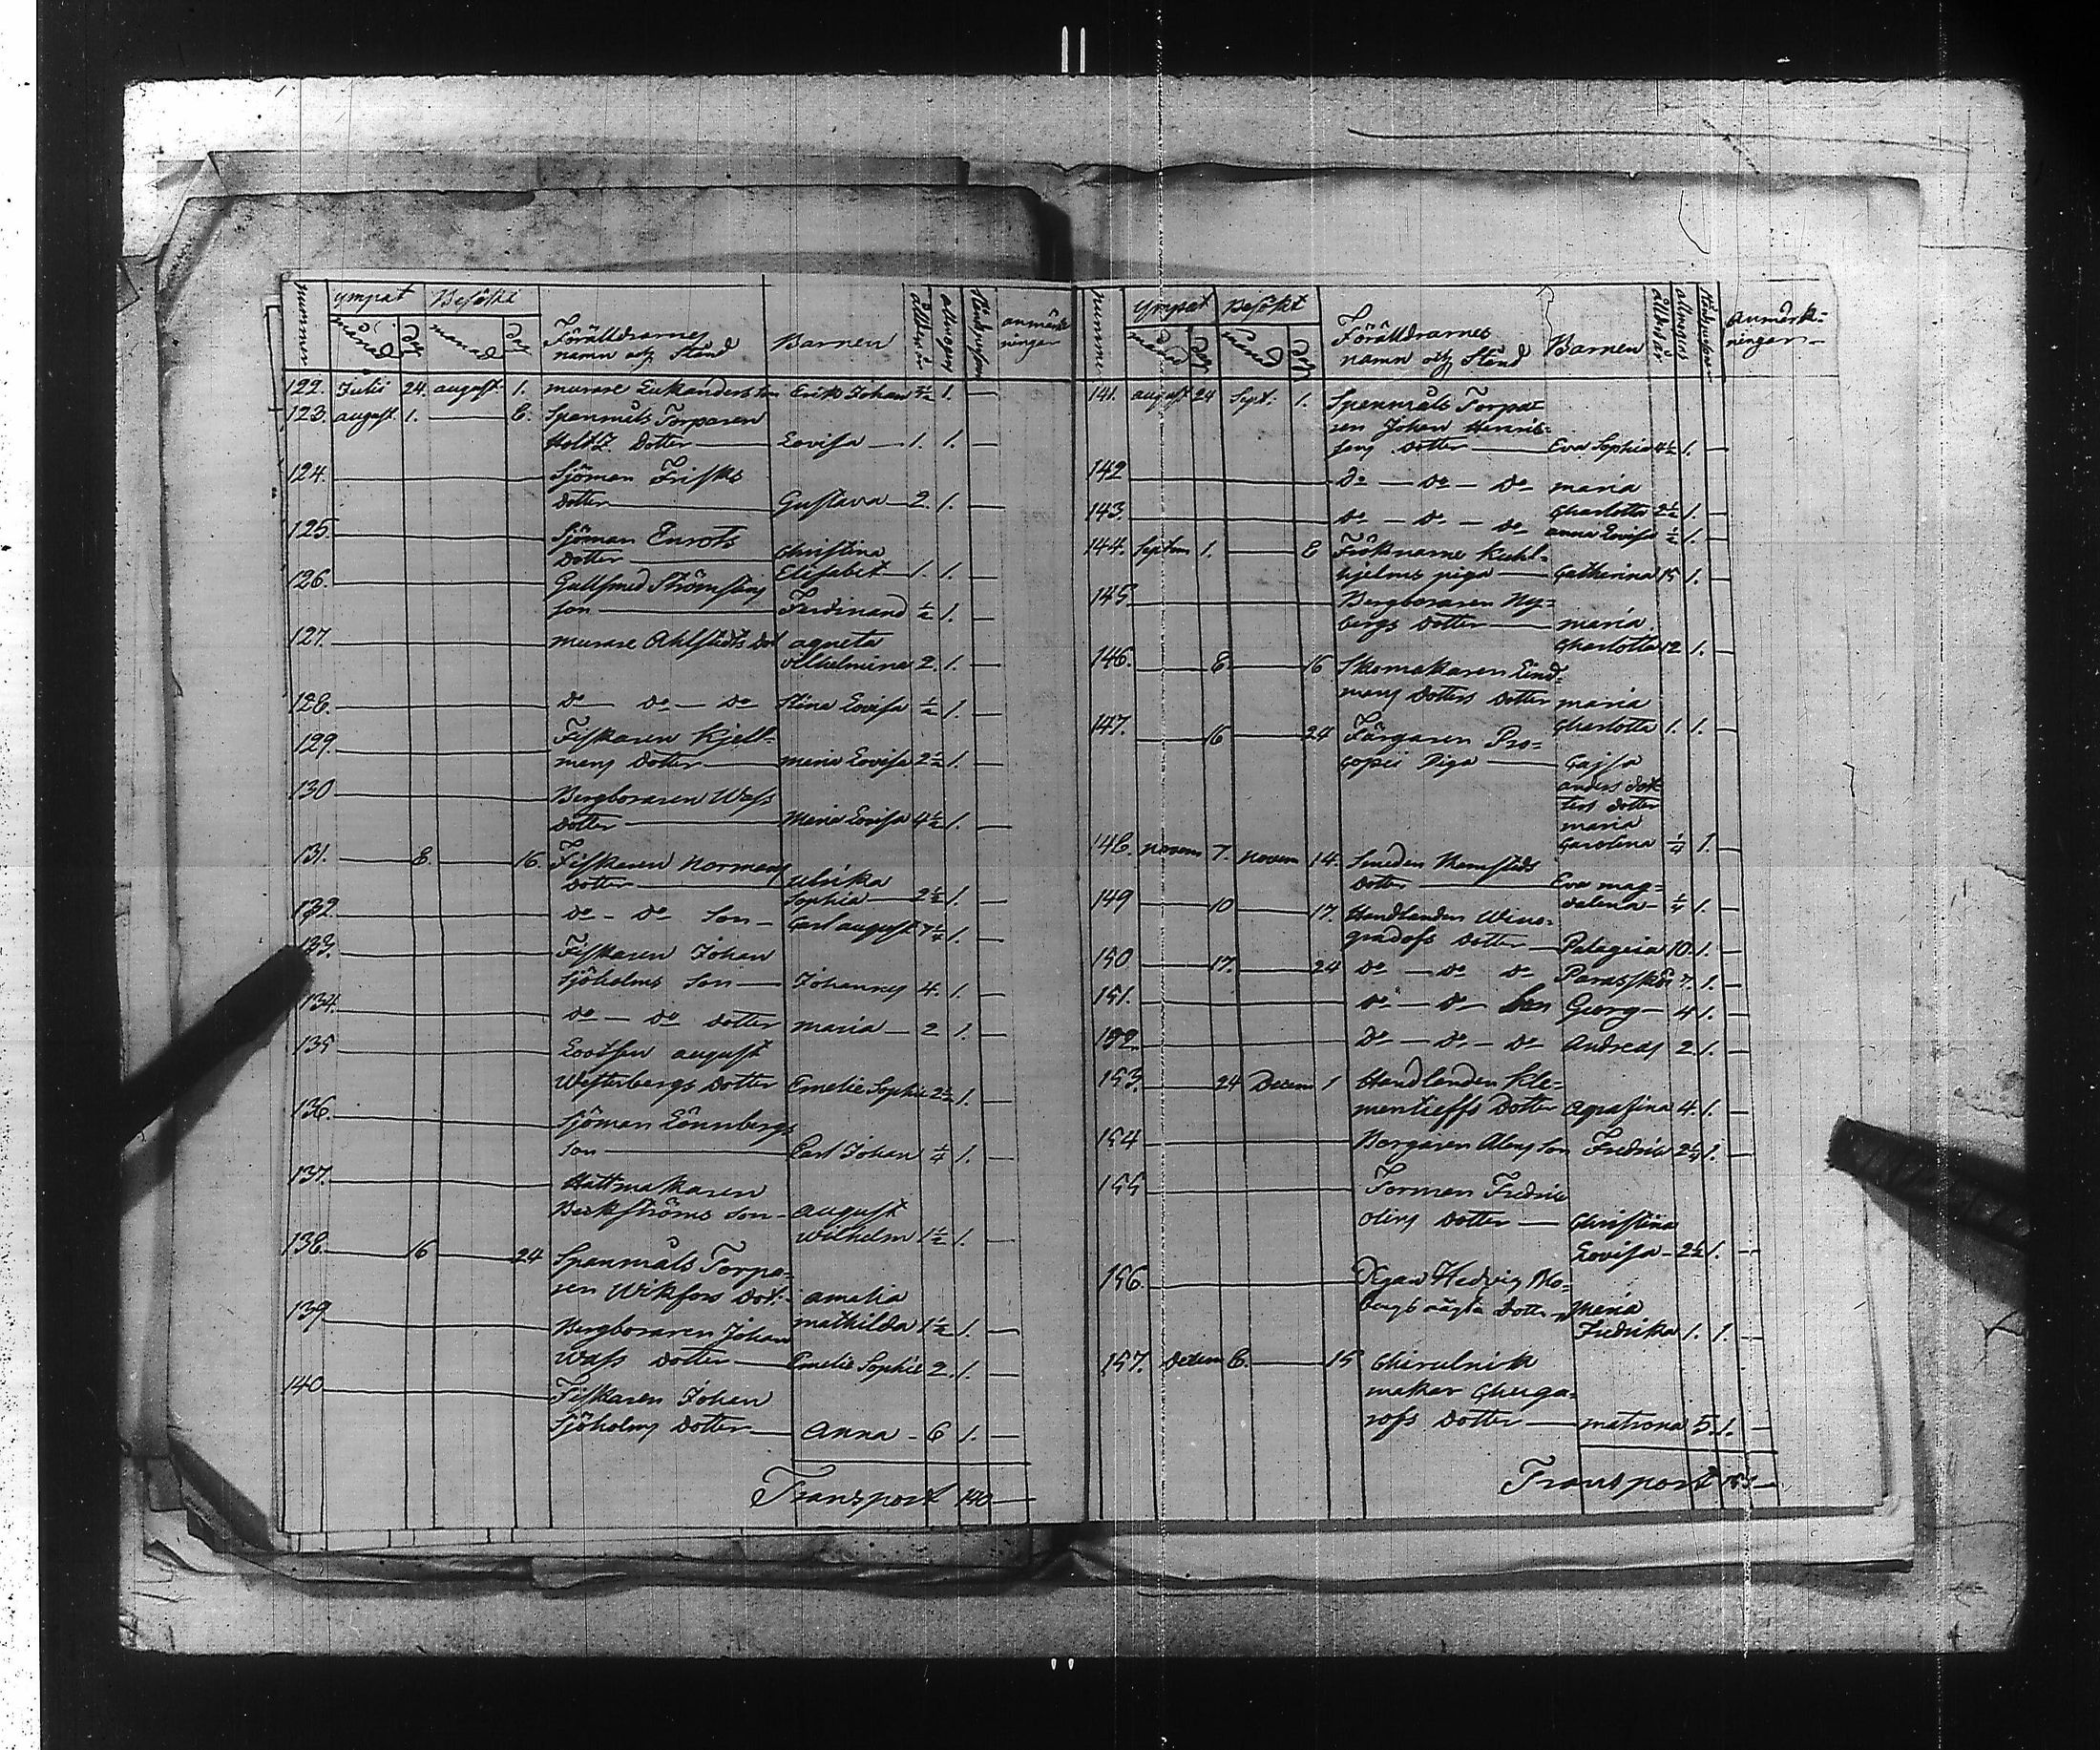 nummer ympat Besökt
månad dag månad dag Föräldrarnes namn och Stånd Barnen ålder år anmärkningar
122. Julii 24. august. 1. murare Erik anderss son Erik Johan 1.
123. august. 1. — 8. Spanmåls Torparen
Holtz Dotter — Lovisa — 1. 1. —
124. — Sjöman Frisks
Dotter — Gustava — 2. 1. —
125. — Sjöman Enrots
Dotter — Christina
Elisabet — 1. 1. —
126. — Gullsmed Strömstens
son — Ferdinand ½ 1. —
127. — murare Ahlstedts Dot agneta
vilhelmina 2. 1. —
128. — do — do — do Stina Lovisa ½ 1. —
129. — Fiskaren Kjell-
mans Dotter — maria Lovisa 2½ 1. —
130 — Bergboraren Wass
Dotter — Maria Lovisa 4½ 1. —
131. — 8. — 16. Fiskaren Normans
Dotter — Ulrika
Sophia — 2½ 1. —
132 — do - do Son — Carl august 7¼ 1. —
133. — Fiskaren Johan
Sjöholms Son — Johannes 4. 1. —
134. — do — do Dotter maria — 2 1. —
135 — Lootsen august
Westerbergs Dotter Emelie Sophie 2½ 1. —
136. — Sjöman Lönnbergs
son — Carl Johan ¼ 1. —
137. — Hattmakaren
Beckströms Son — august
Wilhelm 1½ 1. —
138. — 16 — 24 Spanmåls Torpa-
ren Wikfors Dot. — amalia
mathilda 1½ 1. —
139. — Bergboraren Johan
Wass Dotter — Emelie Sophie 2. 1. —
140 — Fiskaren Johan
Sjöholms Dotter — Anna — 6 1. —
Transport 140 —
Nummer Ympat Besökt
månad dag månad dag Föräldrarnes namn och Stånd Barnen ålder år Anmärk-
ningar
141. august 24 Sept. 1. Spanmåls Torpa-
ren Johan Henrik-
sons Dotter — Eva Sophia 4½ 1. —
142 — do — do — do maria
Charlotta 2½ 1. —
143. — do — do — do anna Lovisa ½ 1. —
144. Septem 1. — 8 Fröknarne Kuhl-
hjelms piga — Catharina 15 1. —
145 — Bergboraren Ny-
bergs Dotter — maria
Charlotta 12 1. —
146. — 8 — 16 Skomakaren Lind-
mans Dotters Dotter maria
Charlotta 1. 1. —
147. — 16 — 24 Färgaren Pro-
copii Piga — Cajsa
anders Dot-
ters Dotter
maria
Carolina ¼ 1. —
148. novem 7. novem 14. Smeden Ramsteds
Dotter — Eva mag-
dalena — ¼ 1. —
149 — 10 — 17. Handlanden Wino-
gradofs Dotter — Pelageia 10. 1. —
150 — 17. — 24 do — do do 7. 1. —
151. — do — do Son Georg — 4 1. —
152. — do — do — do Andreas 2. 1. —
153. — 24 Decem 1 Handlanden Kle-
mentieffs Dotter Agrafina 4. 1. —
154 — Borgaren Alens Son Fredric 2¼ 1. —
155 — Forman Fredric
Olins Dotter — Christina
Lovisa — 2½ 1. —
156. — Pigan Hedvig Mo-
bergs oägta Dotter Maria
Fredrika 1. 1. —
157. Decem 8. — 15
maker
rofs Dotter — matrona 5. 1. —
Transport 157 —